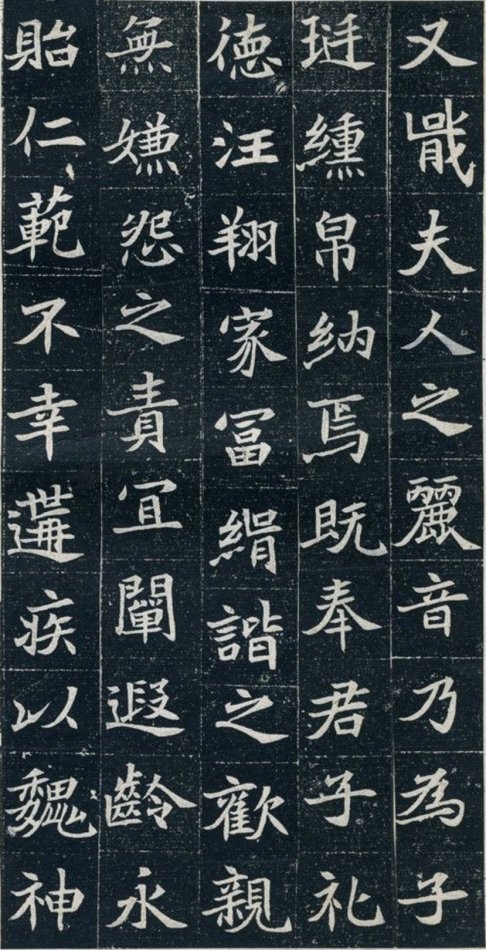 又戢夫人之麗音乃為子
珽纁帛納焉既奉君子礼
徳汪翔家冨緝諧之歡親
無嫌怨之責冝闡遐齡永
貽仁範不幸遘疾以魏神